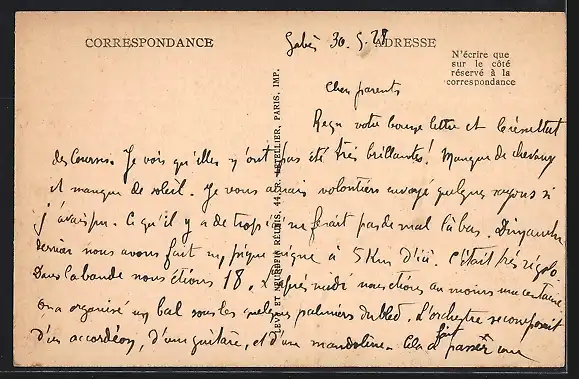 CORRESPONDANCE
ADRESSE
N'écrire que
sur le côté
réservé à la
correspondance
LEVY ET NEURDEIN RÉUNIS, 44, R. LETELLIER, PARIS, IMP.
Gabès 30.5.28
Chers parents
Reçu votre bonne lettre et le résultat
des courses. Je vois qu'elles n'ont pas été très brillantes! Manque de chevaux
et manque de soleil. Je vous aurais volontiers envoyé quelques rayons si
j'avais pu. Ce qu'il y a de trop ici ne ferait pas de mal là bas. Dimanche
dernier nous avons fait un pique nique à 5 Km d'ici. C'était très rigolo.
Dans la bande nous étions 18. L'après midi nous étions au moins une centaine
on a organisé un bal sous les quelques palmiers du bled. L'orchestre se composait
d'un accordéon, d'une guitare, et d'une mandoline. Cela fait passer une